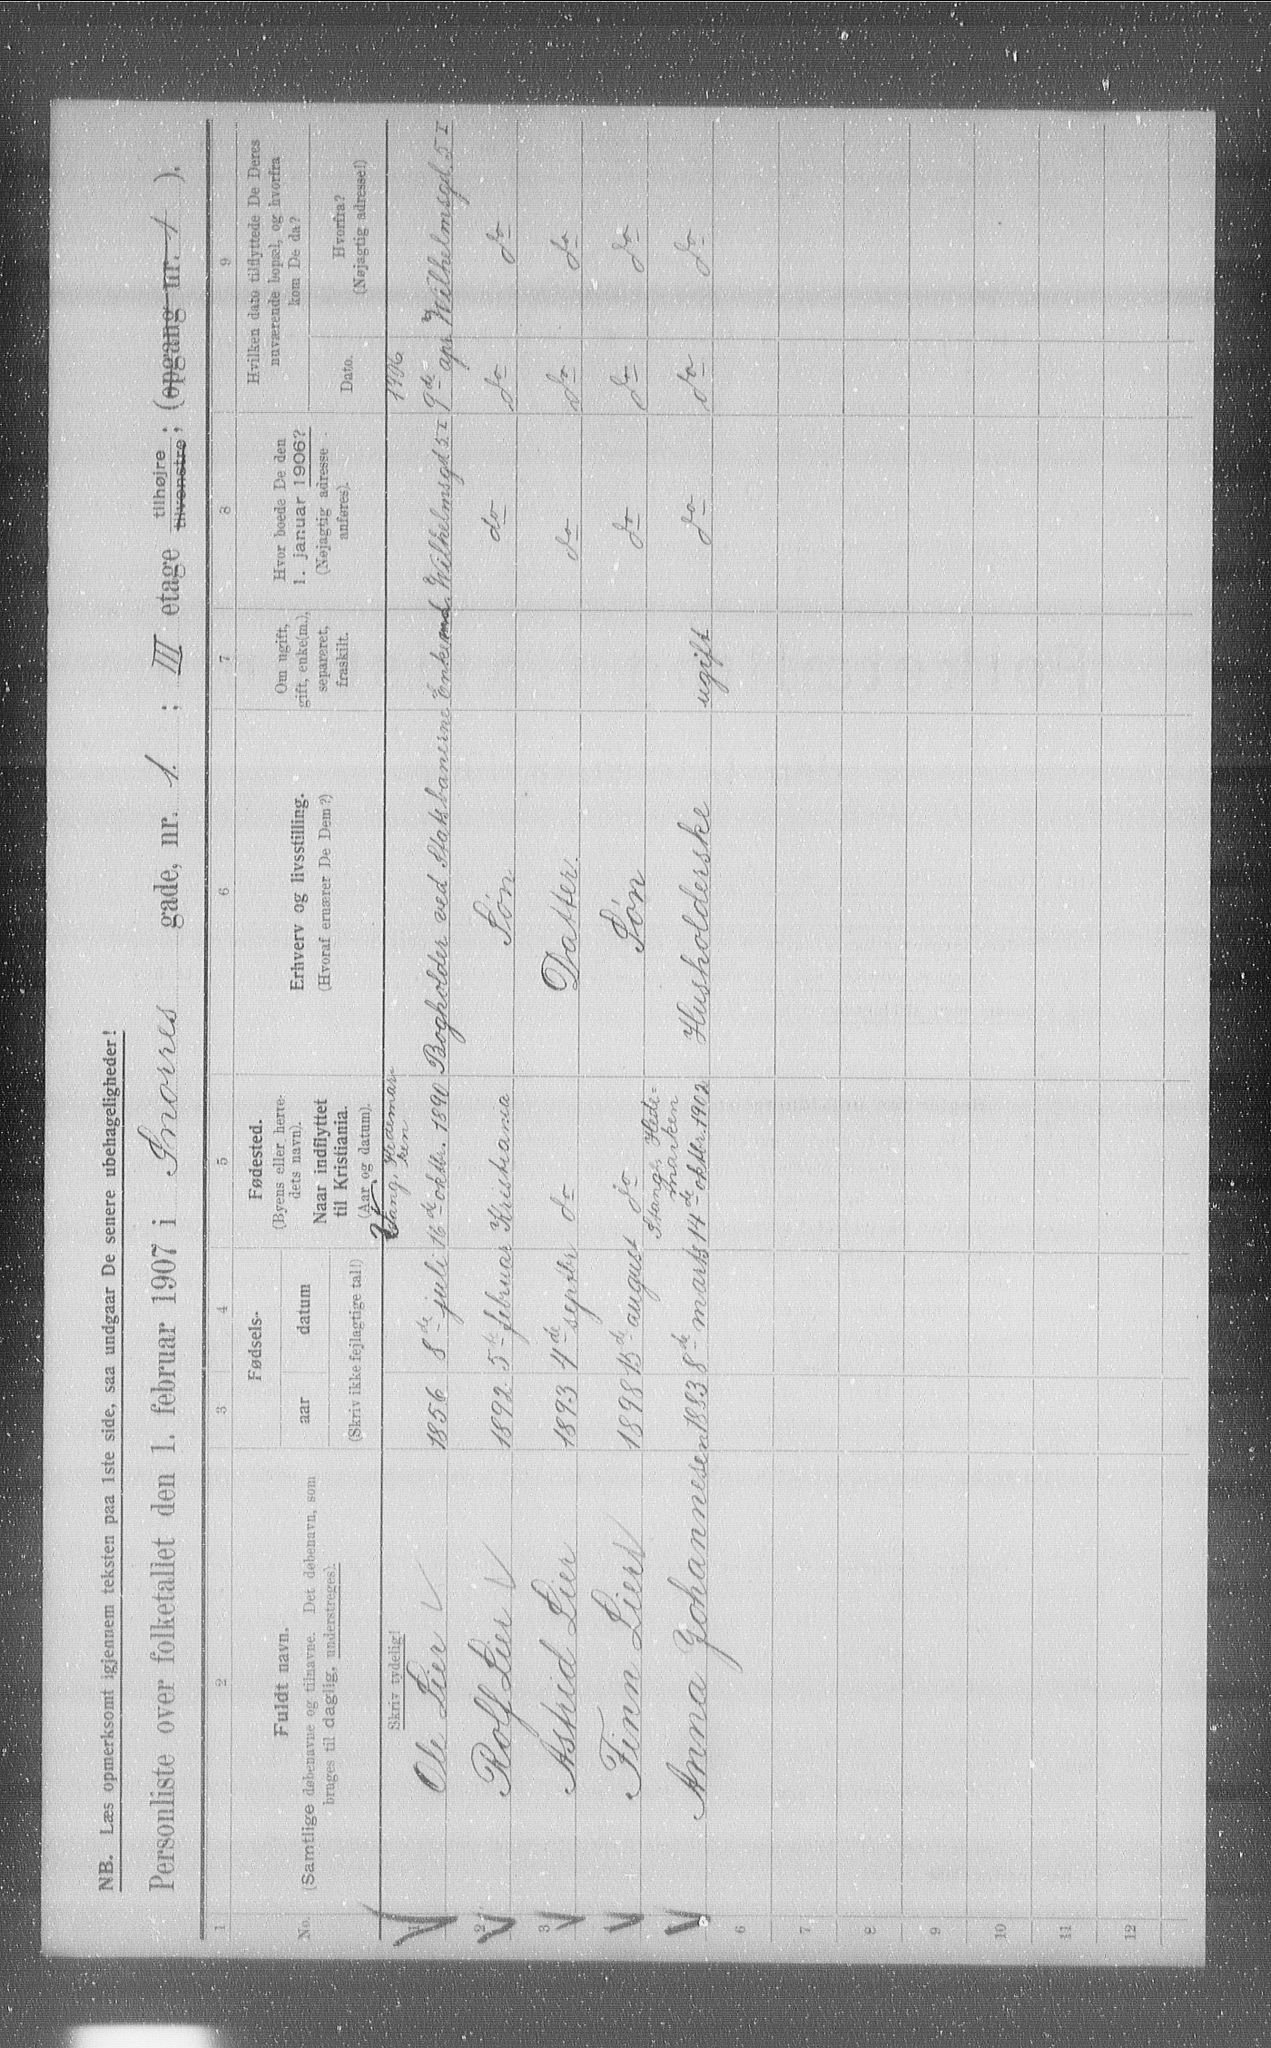 NB. Læs opmerksomt igjennem teksten paa 1ste side, saa undgaar De senere ubehageligheder!
Personliste over folketallet den 1. februar 1907 i Snorres gade, nr. 1. ; III etage tilhøjre tilvenstre; (opgang nr. 1 ).
1 2 3 4 5 6 7 8 9
No.
Fuldt navn.
(Samtlige døbenavne og tilnavne. Det døbenavn, som
bruges til daglig, understreges).
Fødsels-
aar datum
(Skriv ikke fejlagtige tal!)
Fødested.
(Byens eller herre-
dets navn).
Naar indflyttet
til Kristiania.
(Aar og datum).
Erhverv og livsstilling.
(Hvoraf ernærer De Dem?)
Om ugift,
gift, enke(m.),
separeret,
fraskilt.
Hvor boede De den
1. januar 1906?
(Nøjagtig adresse
anføres).
Hvilken dato tilflyttede De Deres
nuværende bopæl, og hvorfra
kom De da?
Dato.
Hvorfra?
(Nøjagtig adresse!)
Skriv tydelig!
Stang, Hedemar-
ken
1906
1 Ole Lier 1856 8de juli 16de oktbr. 1890 Bogholder ved Statsbanerne Enkemd. Wilhelmsgd 5 I 9de apr. Wilhelmsgd. 5 I
2 Rolf Lier 1892 5te februar Kristiania Søn do do do
3 Astrid Lier 1893 4de septbr do Datter. do do do
4 Finn Lier 1898 15de august do Søn do do do
Stange, Hede-
marken
Anna Johannesen 1883 8de marts 14de oktbr. 1902 Husholderske ugift do do do
6
7
8
9
10
11
12